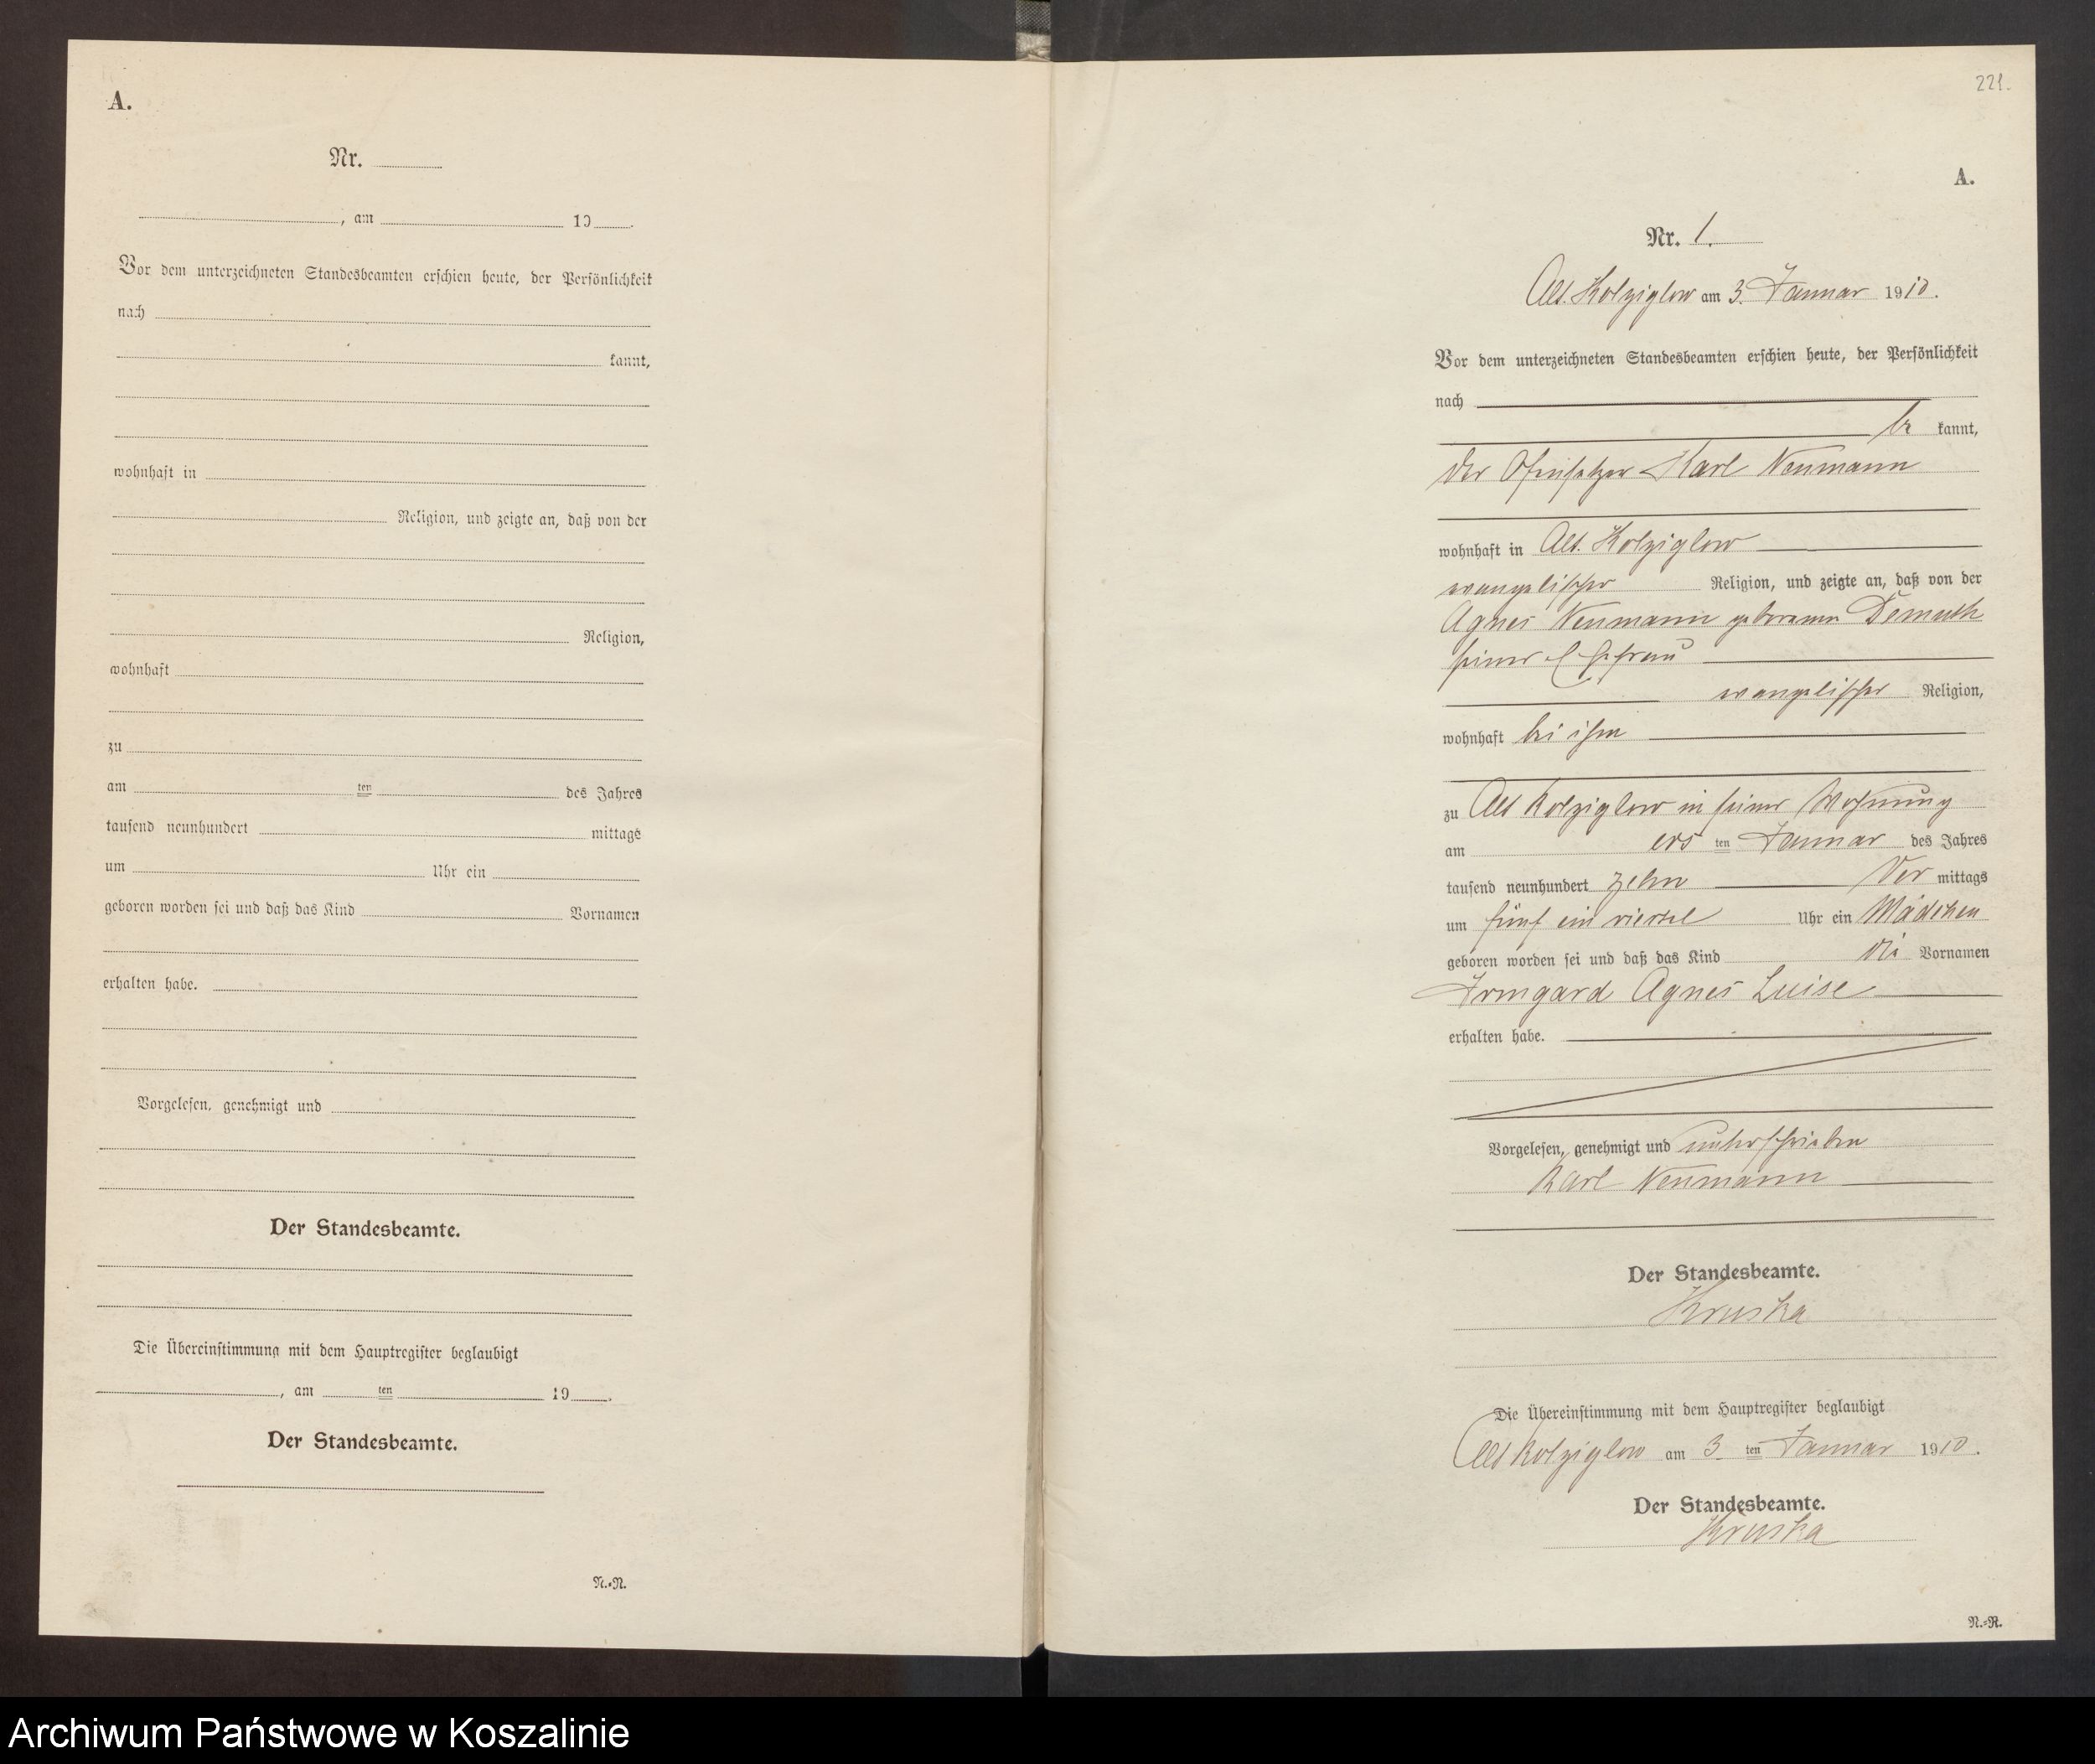 A.
Nr.
, am 19 .
Vor dem unterzeichneten Standesbeamten erschien heute, der Persönlichkeit
nach
kannt,
wohnhaft in
Religion, und zeigte an, daß von der
Religion,
wohnhaft
zu
am ten des Jahres
tausend neunhundert mittags
um Uhr ein
geboren worden sei und daß das Kind Vornamen
erhalten habe.
Vorgelesen, genehmigt und
Der Standesbeamte.
Die Übereinstimmung mit dem Hauptregister beglaubigt
, am ten 19 .
Der Standesbeamte.
N.=N.
221.
A.
Nr. 1.
Alt. Kolziglow am 3. Januar 1910.
Vor dem unterzeichneten Standesbeamten erschien heute, der Persönlichkeit
nach
be kannt,
der Ofensetzer Karl Neumann
wohnhaft in Alt. Kolziglow
evangelischer Religion, und zeigte an, daß von der
Agnes Neumann geborenen Demuth
seiner Ehefrau
evangelischer Religion,
wohnhaft bei ihm
zu Alt Kolziglow in seiner Wohnung
am ers ten Januar des Jahres
tausend neunhundert zehn Vor mittags
um fünf ein viertel Uhr ein Mädchen
geboren worden sei und daß das Kind die Vornamen
Irmgard Agnes Luise
erhalten habe.
Vorgelesen, genehmigt und unterschrieben
Karl Neumann
Der Standesbeamte.
Kruska
Die Übereinstimmung mit dem Hauptregister beglaubigt
Alt Kolziglow am 3. ten Januar 1910.
Der Standesbeamte.
Kruska
N.=N.
Archiwum Państwowe w Koszalinie